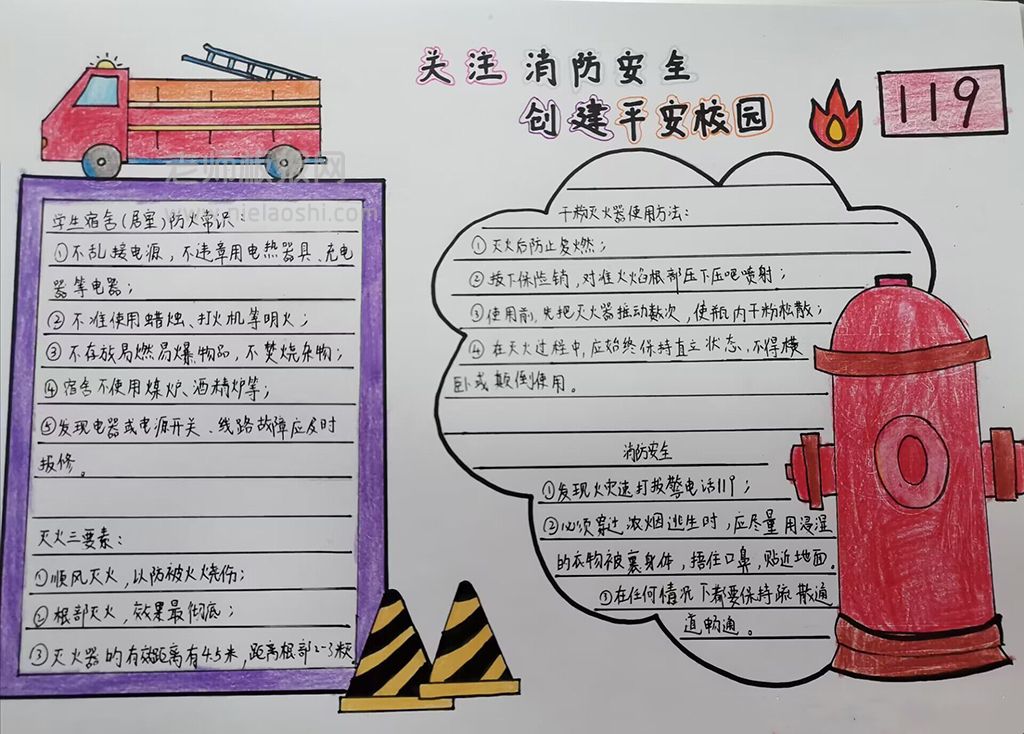 关注 消防安全
创建平安校园
119
老师板报网
www.mielaoshi.com
学生宿舍(居室)防火常识:
①不乱接电源,不违章用电热器具、充电
器等电器;
②不准使用蜡烛、打火机等明火;
③不存放易燃易爆物品,不焚烧杂物;
④宿舍不使用煤炉、酒精炉等;
⑤发现电器或电源开关、线路故障应及时
报修。
灭火三要素:
①顺风灭火,以防被火烧伤;
②根部灭火,效果最彻底;
③灭火器的有效距离有4.5米,距离根部2-3米
干粉灭火器使用方法:
①灭火后防止复燃;
②按下保险销,对准火焰根部压下压吧喷射;
③使用前,先把灭火器摇动数次,使瓶内干粉松散;
④在灭火过程中,应始终保持直立状态,不得横
卧或颠倒使用。
消防安全
①发现火灾速打报警电话119;
②必须穿过浓烟逃生时,应尽量用浸湿
的衣物被裹身体,捂住口鼻,贴近地面。
③在任何情况下都要保持疏散通
道畅通。